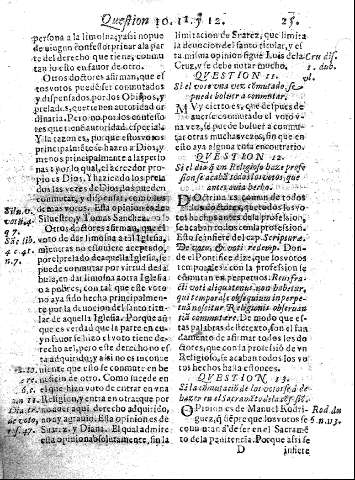 Question 10. 11. y 12. 25.
persona a la limosna; y assi no pue
de ningun confessor privar a la par te
del derecho que tiene, commu
tandolo esto en favor de otro.
Otros doctores afirman, que es
tos votos pueden ser commutados
y dispensados por los Obispos, y pre
lados, que tienen autoridad or
dinaria. Pero no por los confesso
res que tienen autoridad especial.
Y la razon es, porque estos votos
principalmente se hazen a Dios, y
menos principalmente a las perso
nas: y por lo qual, el acreedor pro
pio es Dios. Y haziendo los prela
dos las vezes de Dios, lo pueden
commutar, y dispensar, como los de
mas votos. Esta opinion es de
Siluestro, y Tomas Sanchez.
Otros doctores afirman, que el
voto de dar limosna a tal Iglesia,
mientras no estuviere aceptado,
por el prelado de aquella Iglesia, se
puede commutar por virtud de la
bula, en dar limosna a otra Iglesia
o a pobres, con tal que este voto
no aya sido hecho principalmen
te por la deuocion del santo titu
lar de aquella Iglesia. Porque aun
que es verdad que la parte en cu
yo favor se hizo el voto tiene de
recho a el; pero este derecho no es
ta adquirido, y assi no es inconue
niente que esto se commute en be
neficio de otro. Como sucede en
el que hizo voto de entrar en una
Religion, y entra en otra que por
no aver aqui derecho adquirido,
no ay agravio. Esta opinion es de
Suarez, y Diana. El qual admite
esta opinion absolutamente, sin la
limitacion de Suarez, que limita
la deuocion del santo titular, y el
ta misma opinion sigue Luis de la
Cruz, y se debe notar mucho.
QUESTION 11.
Si el voto una vez commutado, se
puede boluer a commutar.
MUy cierto es, que despues de
auerse commutado el voto v
na vez, se puede boluer a commu
tar otras muchas vezes, sin que en
esto aya alguna cota en contrario.
QUESTION 12.
Si el dia q un Religioso haze profes
sion se acaban todos los votos, que
antes avia hecho.
DOctrina es comun de todos
los doctores, que todos los vo
tos hechos antes de la profession,
se acaban todos con la profession.
Esto se infiere del cap. Scriptura.
De voto, & voti redemp. Don
de el Pontifice dize, que los votos
temporales con la profession se
commutan en perpetuos. Reus fra
cti voti aliquatenus non habetur,
qui temporale obsequium in perpe
tuam noscitur Religionis obseruan
tiam commutare. De modo que es
tas palabras deste texto, son el fun
damento de afirmar todos los do
ctores, que con la professiõ de vn
Religioso, se acaban todos los vo
tos hechos hasta entonces.
QUESTION 13.
OPinion es de Manuel Rodri
guez, q siempre que los votos se
commutan, a de ser en el Sacramẽ
to de la penitencia. Porque assi se
D infiere